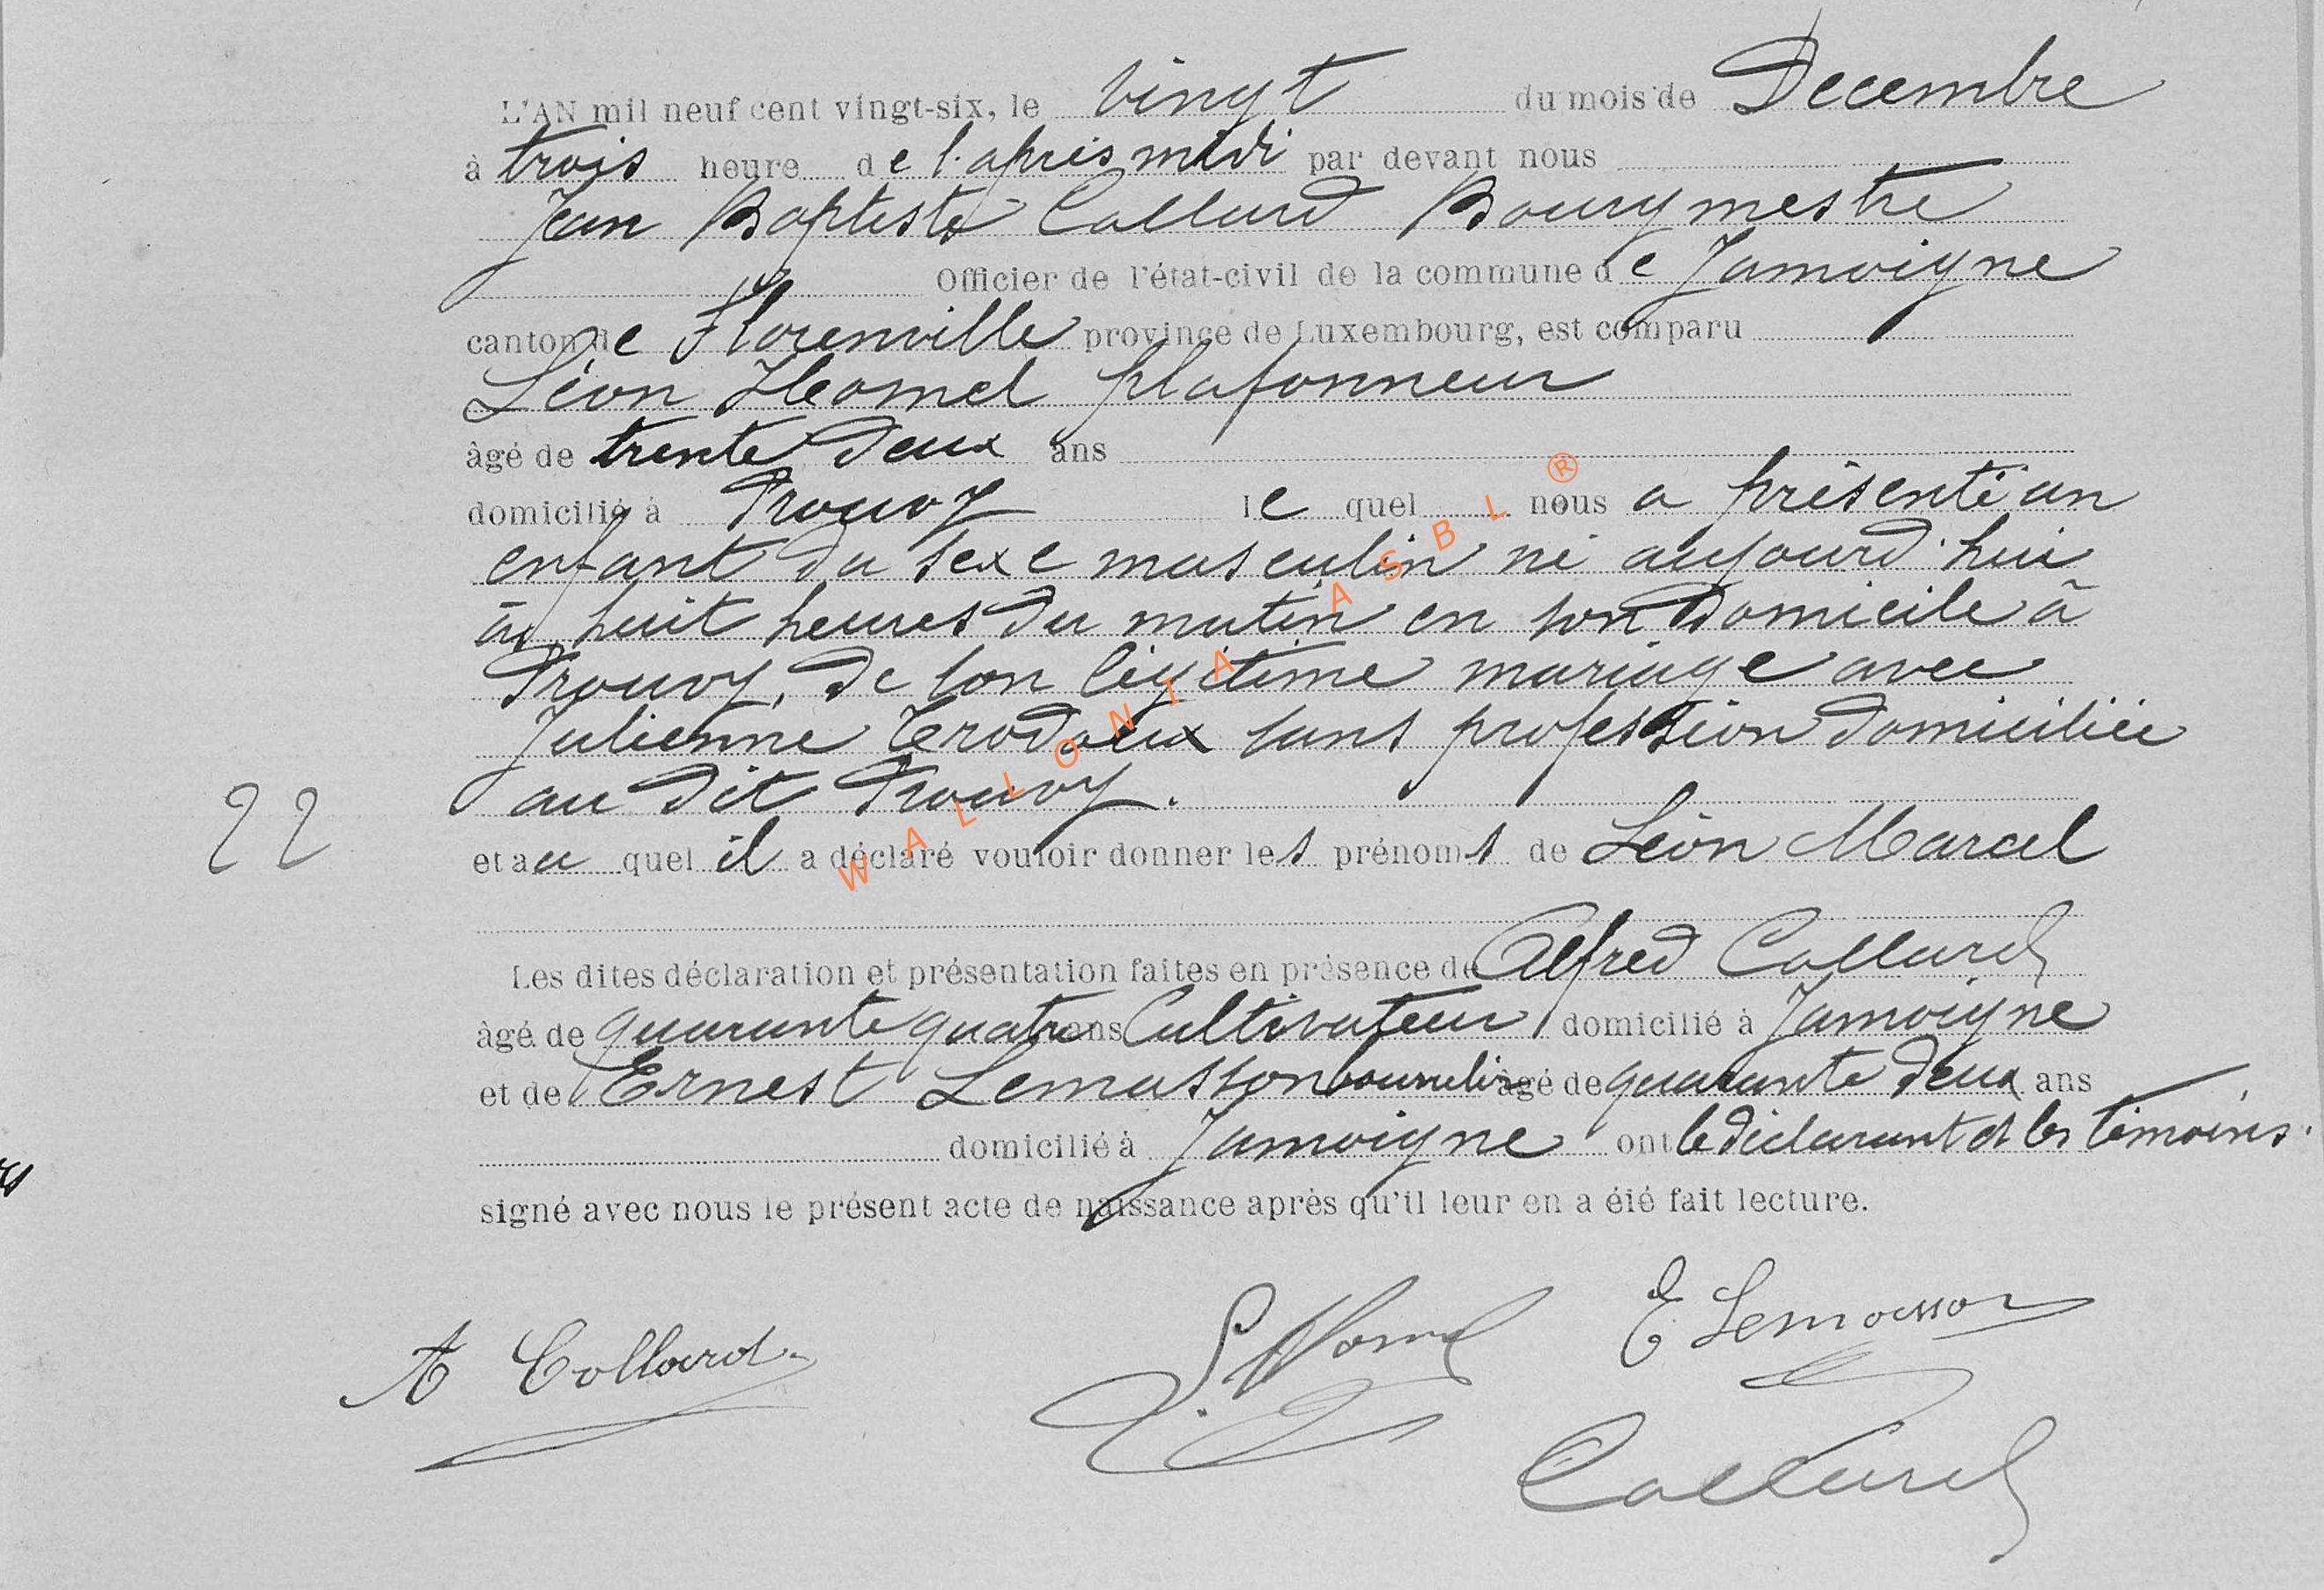 L'AN mil neuf cent vingt-six, le vingt du mois de Decembre
à trois heure de l'après midi par devant nous
Jean Baptiste Collard Bourgmestre
Officier de l'état-civil de la commune de Jamoigne
canton de Florenville province de Luxembourg, est comparu
Léon Hamel plafonneur
âgé de trente deux ans
domicilié à Prouvy le quel nous a présenté un
enfant du sexe masculin né aujourd'hui
à huit heures du matin en son domicile à
Prouvy, de son légitime mariage avec
Julienne sans profession domiciliée
au dit Prouvy.
22
et au quel il a déclaré vouloir donner les prénoms de Léon Marcel
Les dites déclaration et présentation faites en présence de Alfred Collard
âgé de quarante quatre ans Cultivateur domicilié à Jamoigne
et de Ernest Lemasson bourrelier âgé de quarante deux ans
domicilié à Jamoigne ont le déclarant et les témoins.
signé avec nous le présent acte de naissance après qu'il leur en a été fait lecture.
A Collard
L Hamel
E Lemasson
Collard
WALLONIA ASBL ®